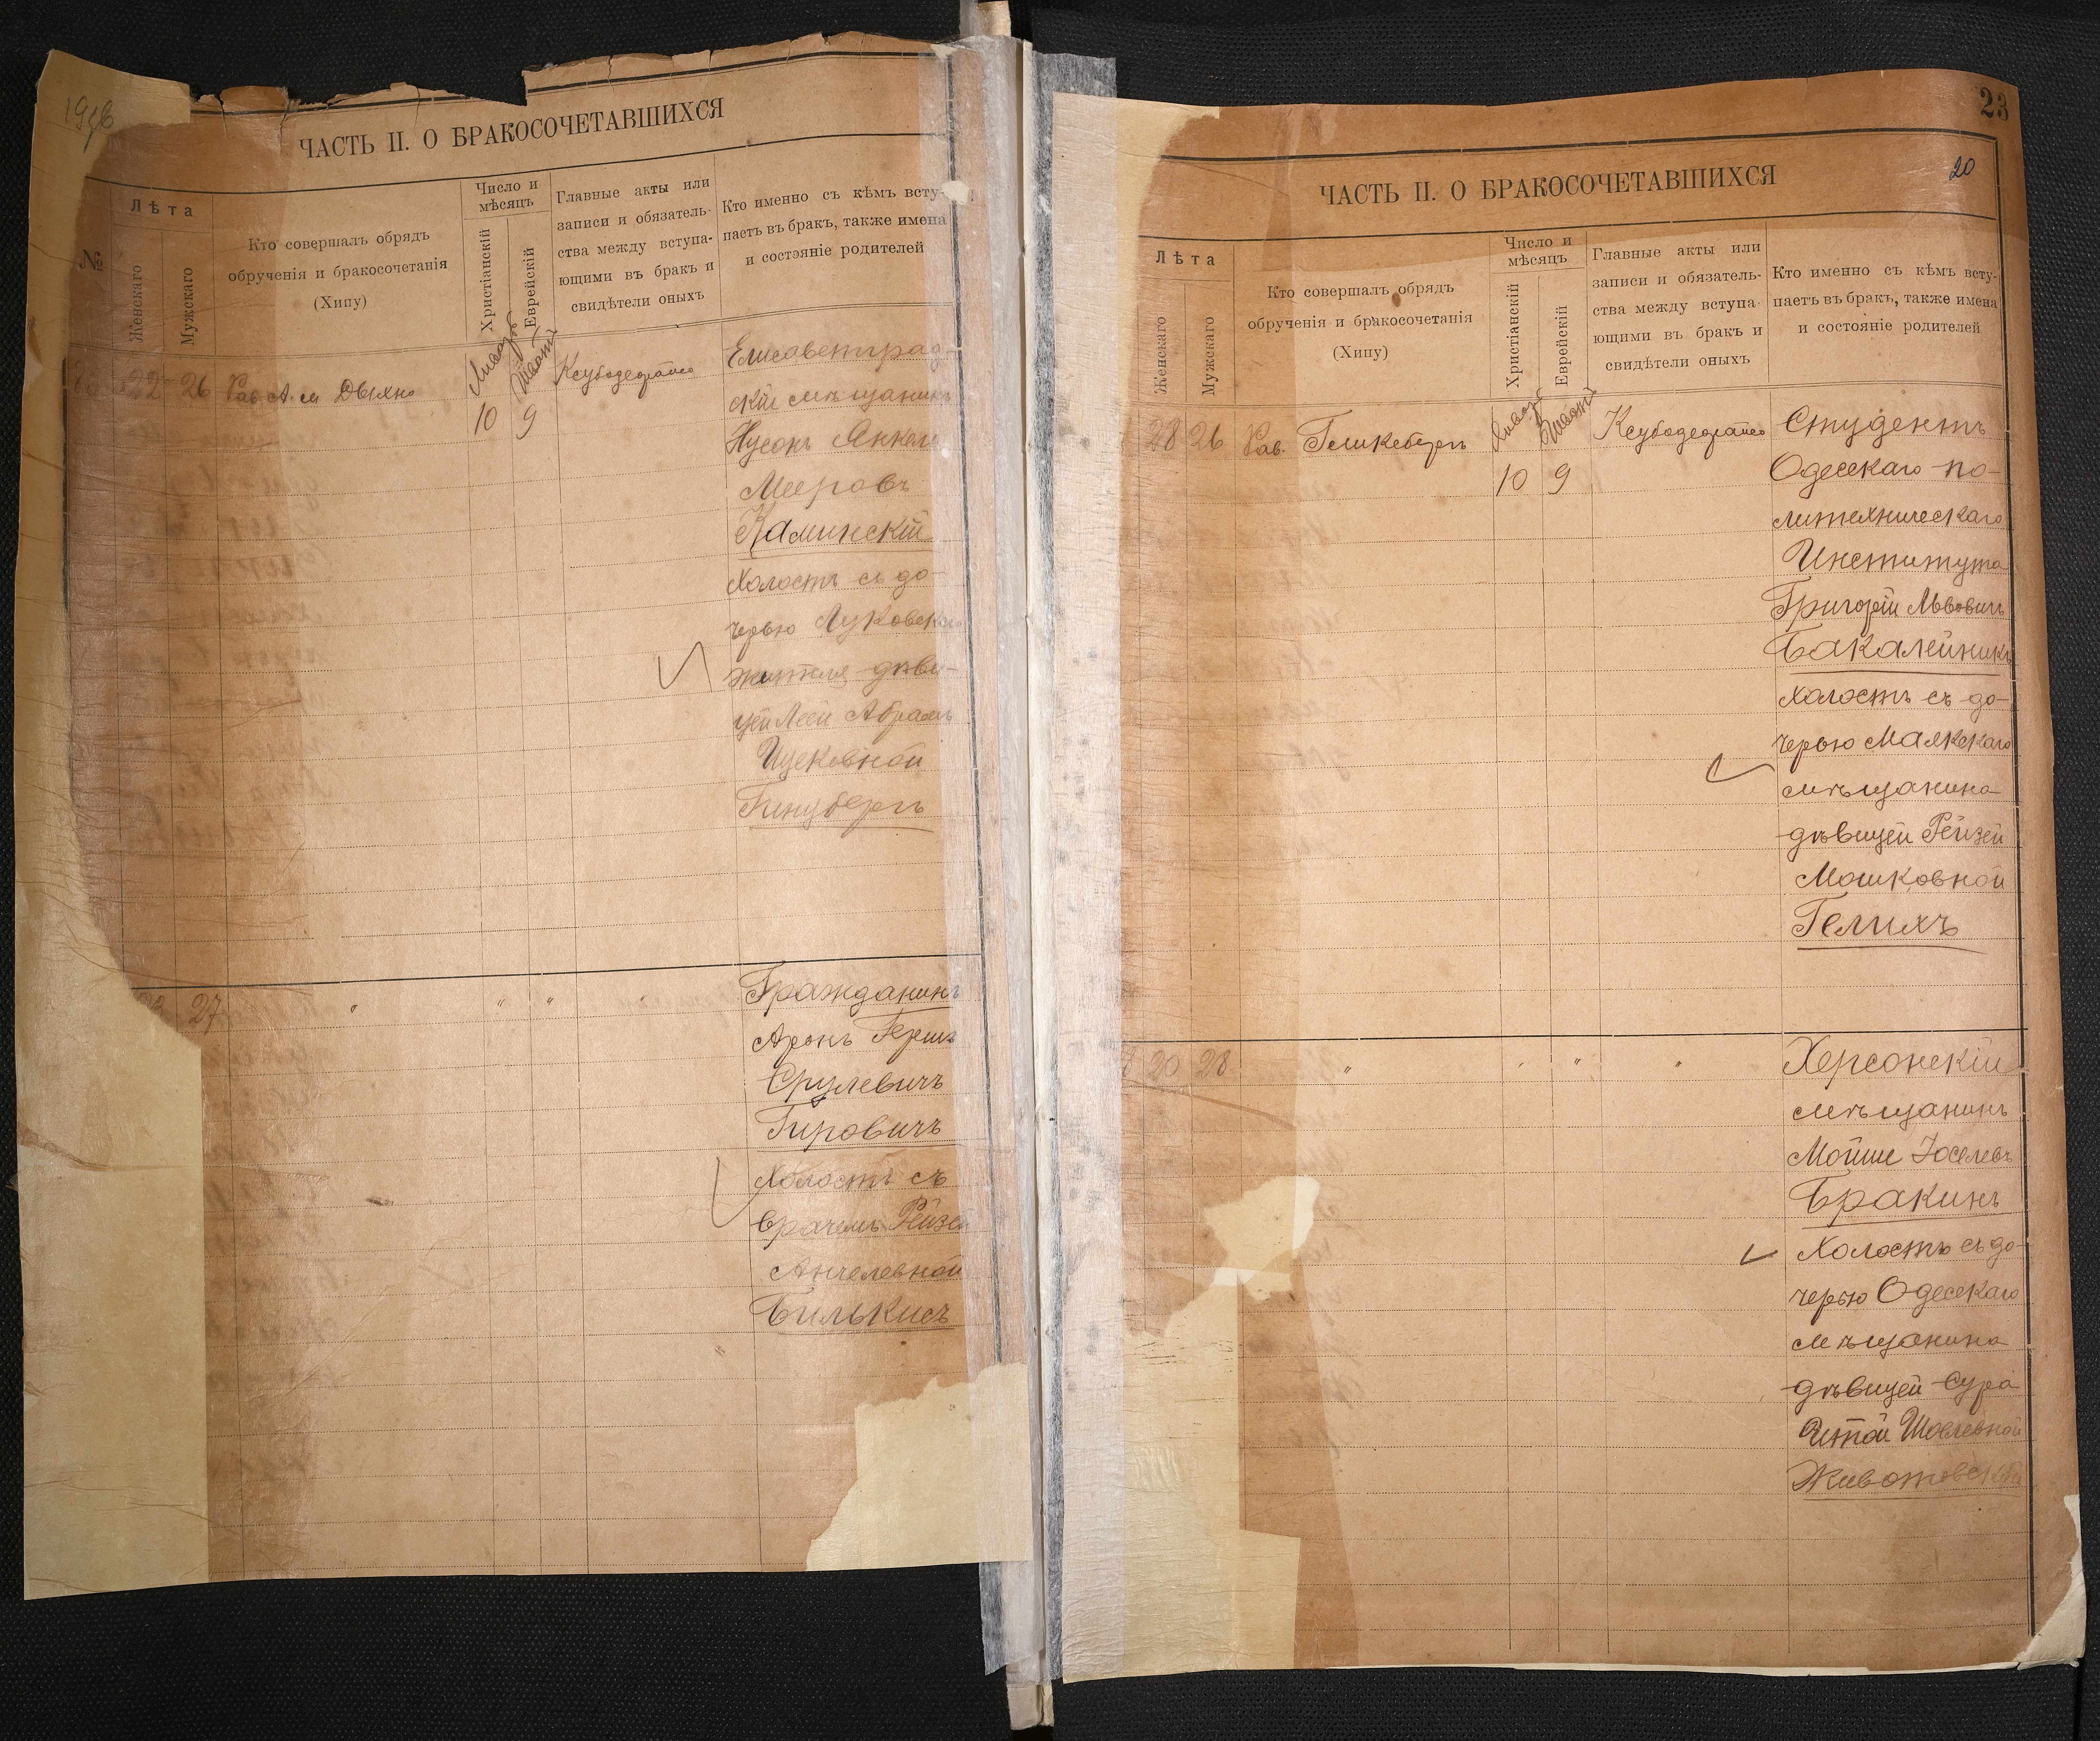 ЧАСТЬ II. О БРАКОСОЧЕТАВШИХСЯ
№
Лѣта
Женскаго
Мужскаго
Кто совершалъ обрядъ
обрученія и бракосочетанія
(Хипу)
Число и
мѣсяцъ
Христіанскій
Еврейскій
Главные акты или
записи и обязатель-
ства между вступа-
ющими въ бракъ и
свидѣтели оныхъ
Кто именно съ кѣмъ всту-
паетъ въ бракъ, также имена
и состояніе родителей
22
26
Рав.
Январь
10
9
Елисаветград-
скій мѣщанинъ
Нусонъ Янкель
Мееровъ
Каминскій
холостъ съ до-
черью Луковска
жителя дѣви-
цей Леей Абрамъ
Ицековной
Гинзбергъ
27
"
"
"
"
Гражданинъ
Аронъ Герша
Срулевичъ
Гировичъ
холостъ съ
врачемъ Рейзей
Анчелевной
Билькисъ
23
20
ЧАСТЬ II. О БРАКОСОЧЕТАВШИХСЯ
Лѣта
Женскаго
Мужскаго
Кто совершалъ обрядъ
обрученія и бракосочетанія
(Хипу)
Число и
мѣсяцъ
Христіанскій
Еврейскій
Главные акты или
записи и обязатель-
ства между вступа-
ющими въ бракъ и
свидѣтели оныхъ
Кто именно съ кѣмъ всту-
паетъ въ бракъ, также имена
и состояніе родителей
28
26
Рав.
Январь
10
9
Студентъ
Одесскаго по-
литехническаго
Института
Григорій Львовичъ
Бакалейникъ
холостъ съ до-
черью Маякскаго
мѣщанина
дѣвицей Рейзей
Мошковной
Гелихъ
20
28
"
"
"
Херсонскій
мѣщанинъ
Мойше Іоселевъ
Бракинъ
Холостъ съ до-
черью Одесскаго
мѣщанина
дѣвицей Сура
Итой Шоелевной
Животовской